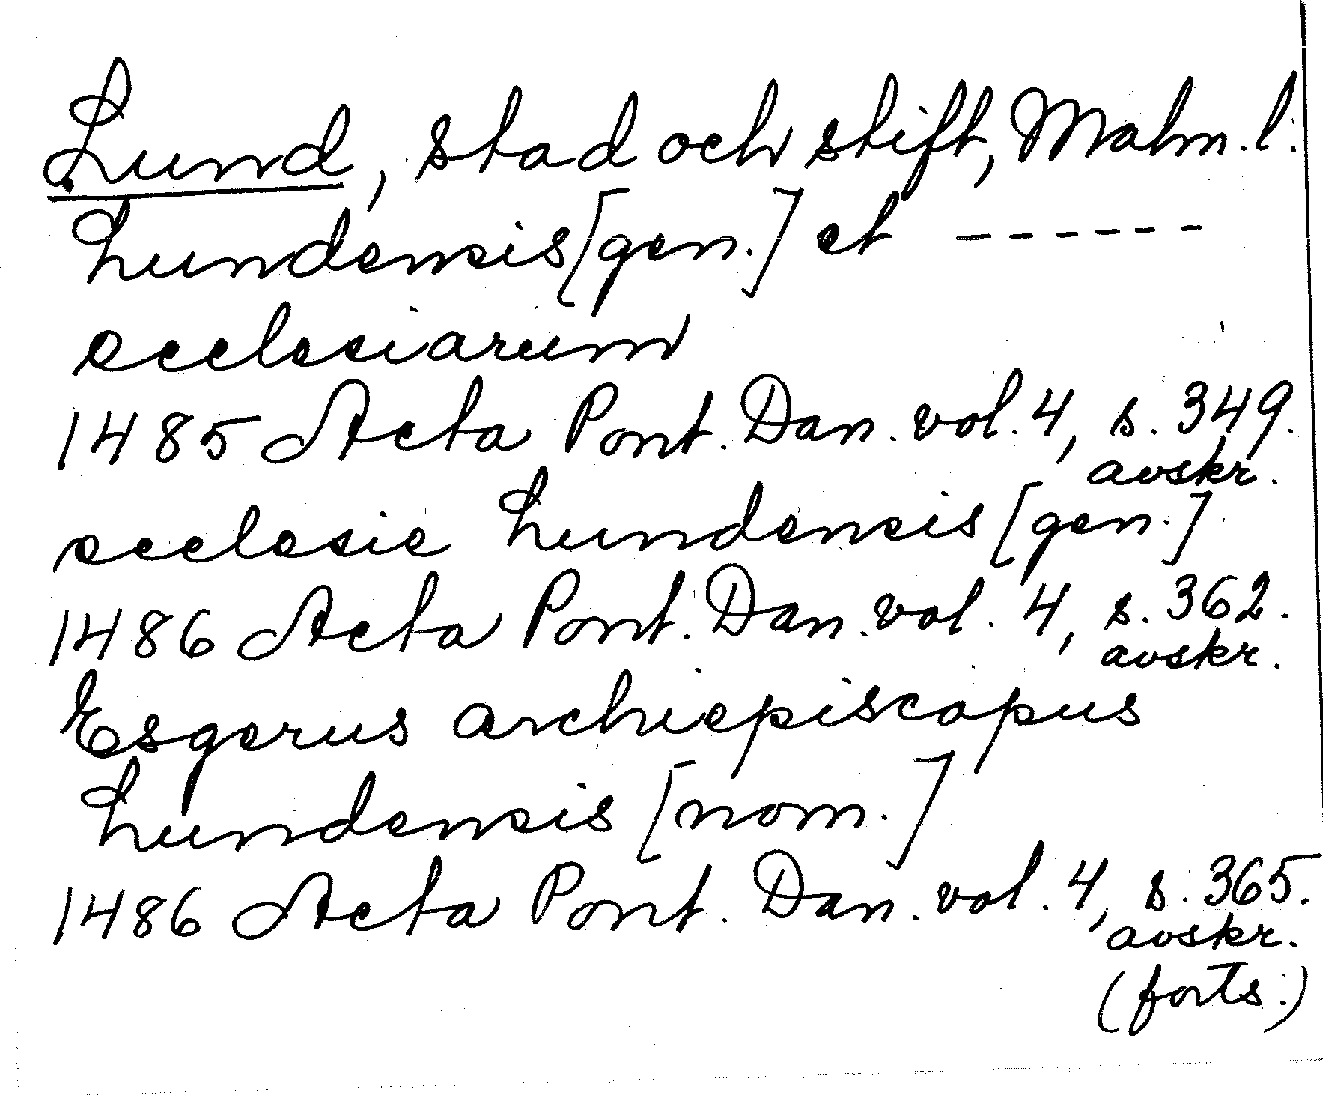 Lund, stad och stift, Malm.l.
Lundensis [gen.] et ------
ecclesiarum
1485 Acta Pont. Dan. vol. 4, s. 349.
avskr.
ecclesie Lundensis [gen.]
1486 Acta Pont. Dan. vol. 4, s. 362.
avskr.
Esgerus archiepiscopus
Lundensis [nom.]
1486 Acta Pont. Dan. vol. 4, s. 365.
avskr.
(forts.)